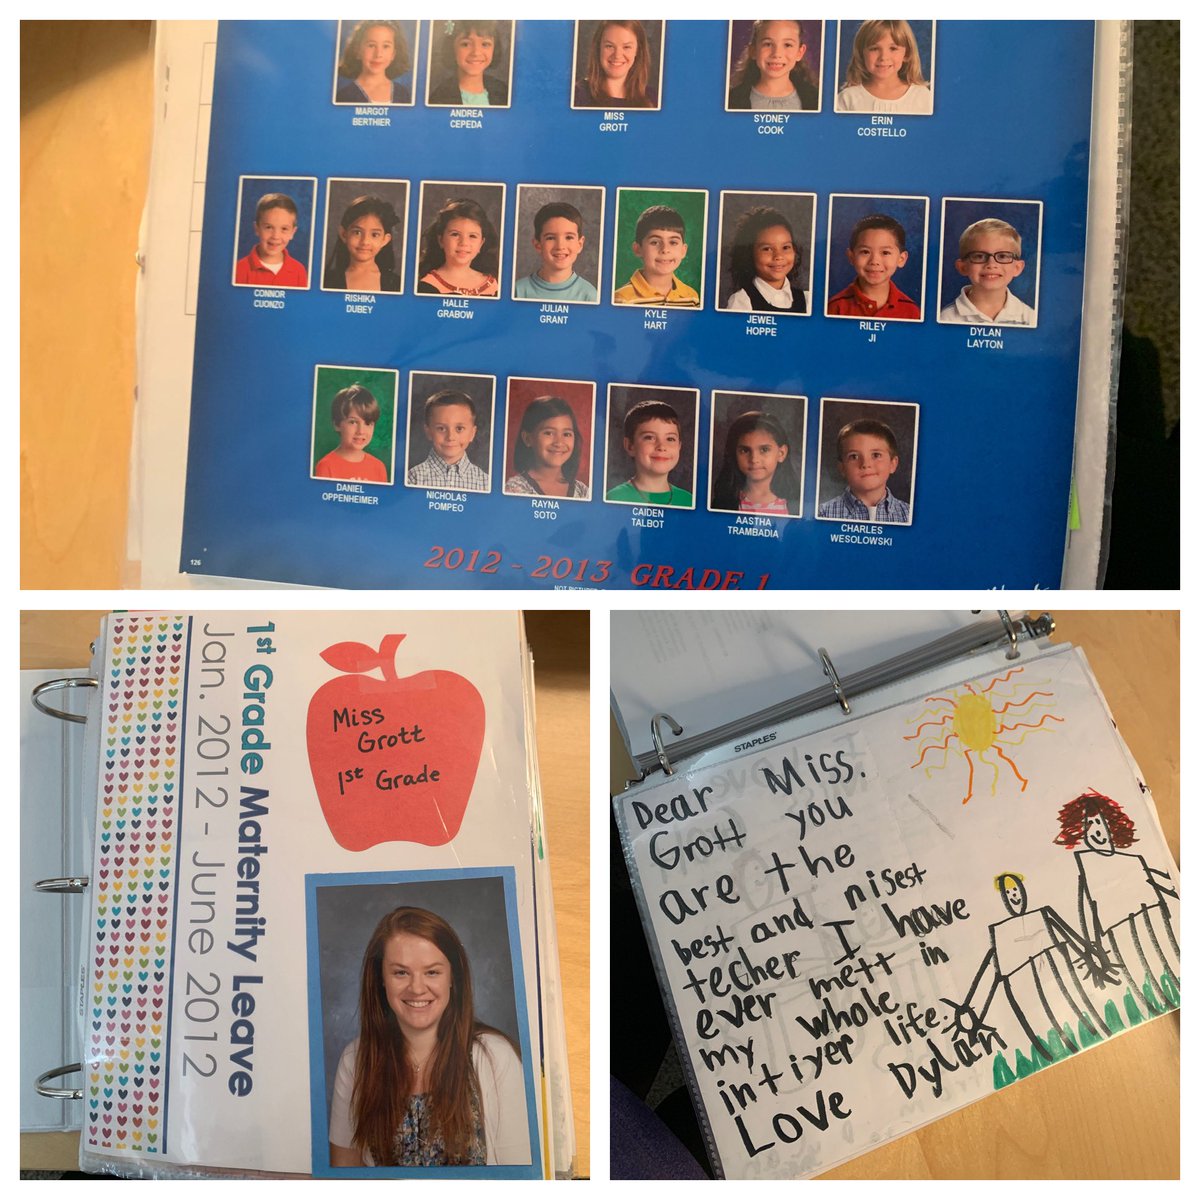 MARGOT
BERTHIER
ANDREA
CEPEDA
MISS
GROTT
SYDNEY
COOK
ERIN
COSTELLO
CONNOR
CUONZO
RISHIKA
DUBEY
HALLE
GRABOW
JULIAN
GRANT
KYLE
HART
JEWEL
HOPPE
RILEY
JI
DYLAN
LAYTON
DANIEL
OPPENHEIMER
NICHOLAS
POMPEO
RAYNA
SOTO
CAIDEN
TALBOT
AASTHA
TRAMBADIA
CHARLES
WESOLOWSKI
126
2012 - 2013 GRADE 1
NOT PICTURED
1st Grade Maternity Leave
Jan. 2012 - June 2012
Miss
Grott
1st Grade
STAPLES
STAPLES
Dear Miss.
Grott you
are the
best and nisest
techer I have
ever mett in
my whole
intiyer life.
Love Dylan